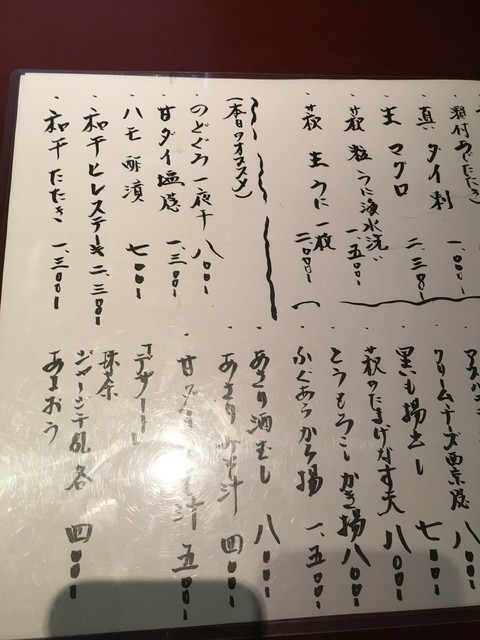 ・真ダイ刺 二、三〇〇ー
・生マグロ
・萩 粒うに海水洗い 一、五〇〇ー
・萩 生うに一枚 二、〇〇〇ー
(本日のオススメ)
・のどぐろ一夜干 八〇〇ー
・甘ダイ塩焼 一、三〇〇ー
・ハモ酢漬 七〇〇ー
・和牛ヒレステーキ 二、三〇〇ー
・和牛たたき 一、三〇〇ー
クリームチーズ西京焼 八〇〇ー
・黒いも揚出し 七〇〇ー
・萩のたまげなす天 八〇〇ー
・とうもろこしかき揚 八〇〇ー
・ふぐあらから揚 一、五〇〇ー
・あさり酒むし 八〇〇ー
・あさりみそ汁 四〇〇ー
・甘ダイみそ汁 五〇〇ー
「デザート」
抹茶
ジャージー乳 各 四〇〇ー
あまおう